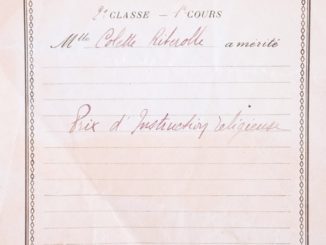 2e CLASSE — 1er COURS
Mlle Colette Riterolle a mérité
Prix d'Instruction religieuse